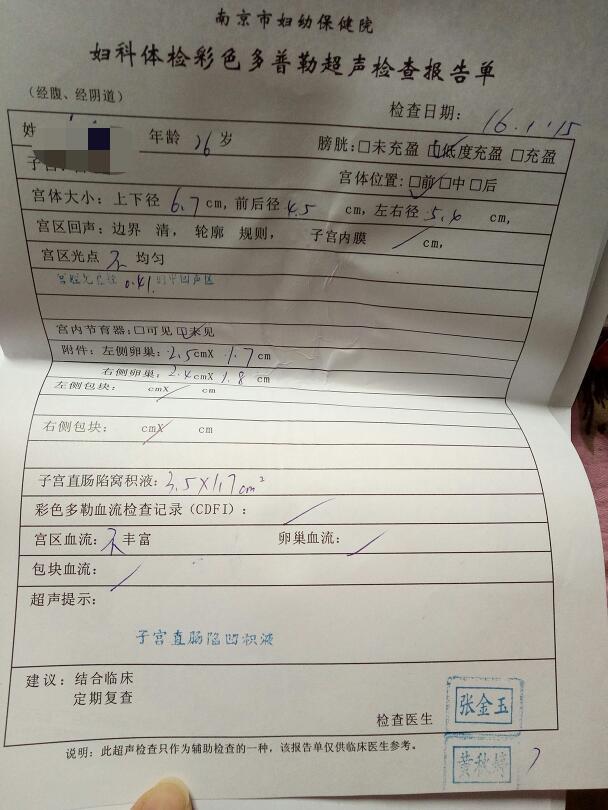 南京市妇幼保健院
妇科体检彩色多普勒超声检查报告单
(经腹、经阴道)
检查日期: 16.1.15
姓 年龄 26 岁 膀胱:□未充盈 □低度充盈 □充盈
宫体位置:□前□中□后
宫体大小:上下径 6.7 cm,前后径 4.5 cm,左右径 5.4 cm,
宫区回声:边界 清, 轮廓 规则, 子宫内膜 / cm,
宫区光点 不 均匀
0.41
宫内节育器:□可见 □未见
附件:左侧卵巢:2.5cmX 1.7 cm
右侧卵巢:2.4cmX 1.8 cm
左侧包块: cmX cm
右侧包块: cmX cm
子宫直肠陷窝积液:3.5X1.7cm²
彩色多勒血流检查记录(CDFI):/
宫区血流:不丰富 卵巢血流:/
包块血流:/
超声提示:
子宫直肠陷凹积液
建议:结合临床
定期复查
检查医生 张金玉
黄秋婷
说明:此超声检查只作为辅助检查的一种,该报告单仅供临床医生参考。